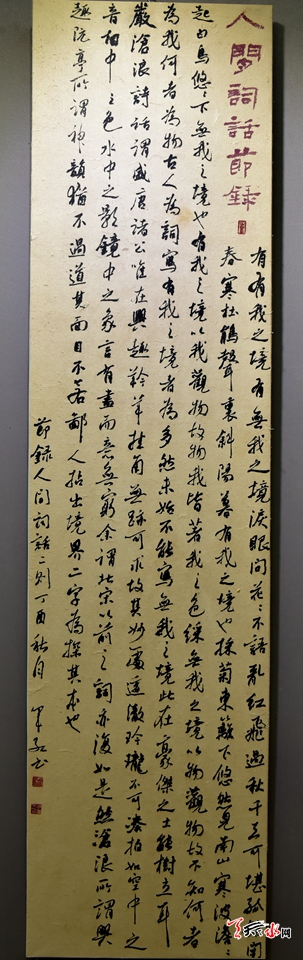 人間詞話節錄
有有我之境有無我之境淚眼問花〻不語亂紅飛過秋千去可堪孤閉
春寒杜鵑聲裏斜陽暮有我之境也採菊東籬下悠然見南山寒波澹〻
起白鳥悠〻下無我之境也有我之境以我觀物故物我皆著我之色綵無我之境以物觀物故不知何者
為我何者為物古人為詞寫有我之境者為多然未始不能寫無我之境此在豪傑之士能樹立耳
嚴滄浪詩話謂盛唐諸公唯在興趣羚羊挂角無跡可求故其妙處透澈玲瓏不可湊拍如空中之
音相中之色水中之影鏡中之象言有盡而意無窮余謂北宋以前之詞亦復如是然滄浪所謂興
趣阮亭所謂神韻猶不過道其面目不若鄙人拈出境界二字為探其本也
節錄人間詞話二則丁酉秋月書
衡水网